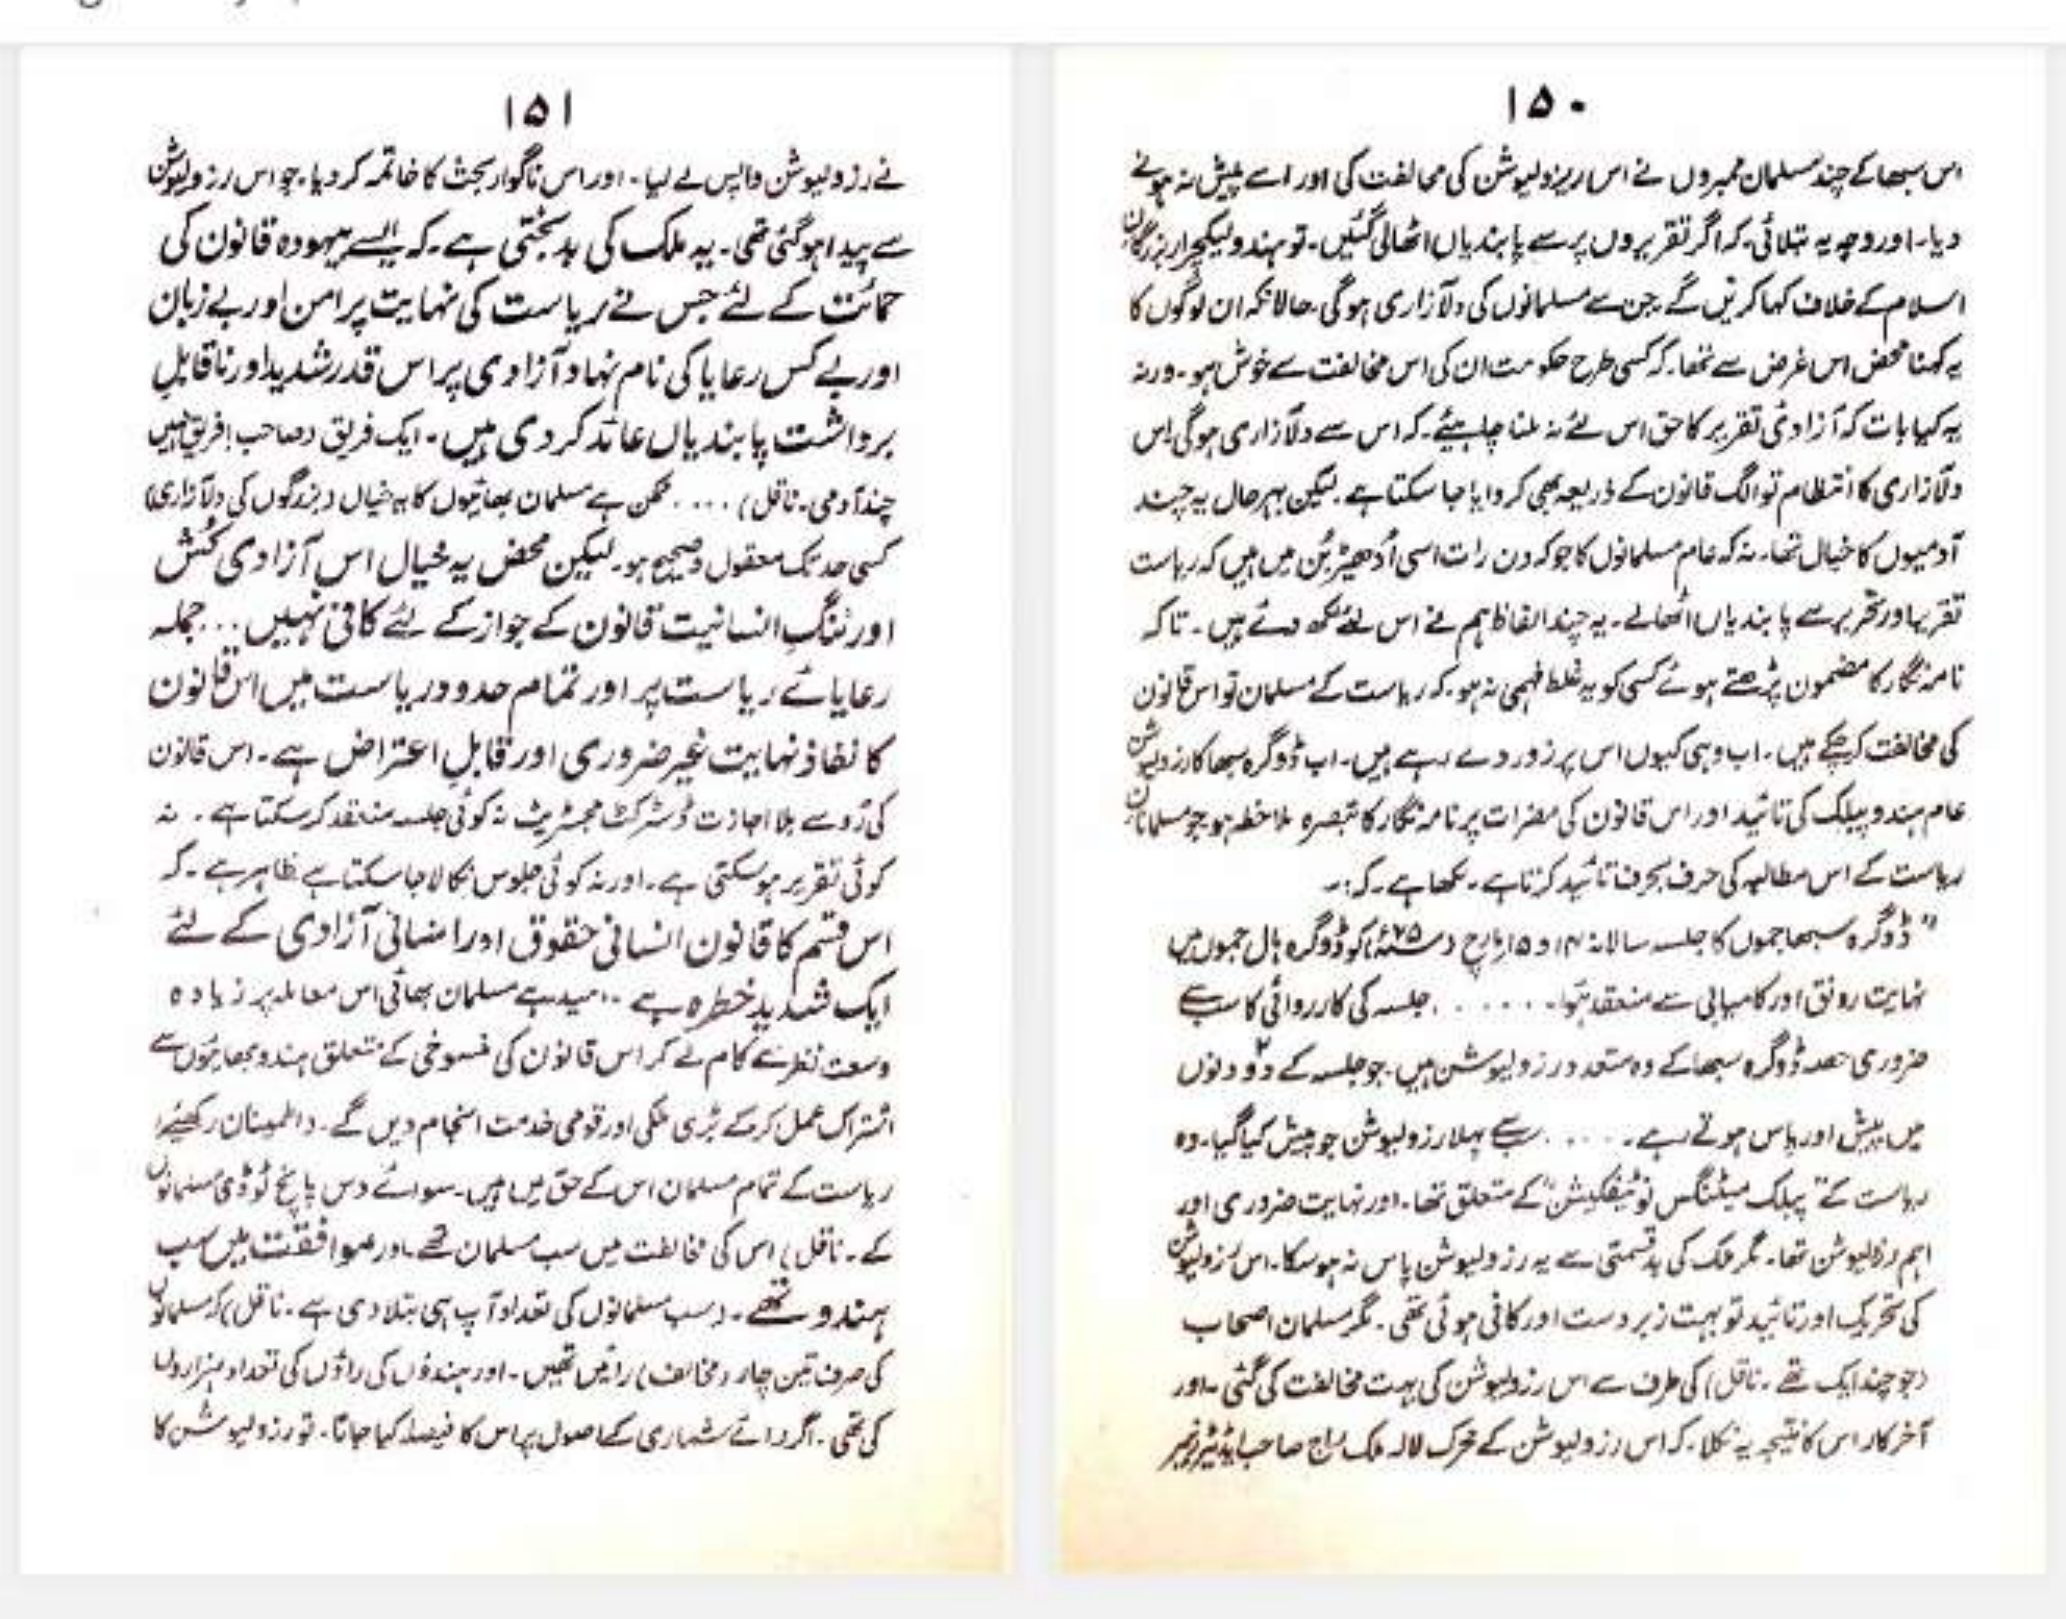 ۱۵۰
اس سبھا کے چند مسلمان ممبروں نے اس ریزولیوشن کی مخالفت کی اور اسے پیش نہ ہونے
دیا۔ اور وجہ یہ بتلائی۔ کہ اگر تقریروں پر سے پابندیاں اٹھالی گئیں۔ تو ہندو لیکچرار بزرگان
اسلام کے خلاف کہا کریں گے۔ جن سے مسلمانوں کی دلآزاری ہوگی۔ حالانکہ ان لوگوں کا
یہ کہنا محض اس غرض سے تھا۔ کہ کسی طرح حکومت ان کی اس مخالفت سے خوش ہو۔ ورنہ
یہ کیا بات کہ آزادئی تقریر کا حق اس لئے نہ ملنا چاہیئے۔ کہ اس سے دلآزاری ہوگی۔ اس
دلآزاری کا انتظام تو الگ قانون کے ذریعہ بھی کروایا جا سکتا ہے۔ لیکن بہرحال یہ چند
آدمیوں کا خیال تھا۔ نہ کہ عام مسلمانوں کا جو کہ دن رات اسی اُدھیڑ بُن میں ہیں کہ ریاست
تقریر اور تحریر سے پابندیاں اٹھالے۔ یہ چند الفاظ ہم نے اس لئے لکھ دئے ہیں۔ تاکہ
نامہ نگار کا مضمون پڑھتے ہوئے کسی کو یہ غلط فہمی نہ ہو۔ کہ ریاست کے مسلمان تو اس قانون
کی مخالفت کر چکے ہیں۔ اب وہی کیوں اس پر زور دے رہے ہیں۔ اب ڈوگرہ سبھا کا رزولیوشن
عام ہندو پبلک کی تائید اور اس قانون کی مضرات پر نامہ نگار کا تبصرہ ملاحظہ ہو جو مسلمانان
ریاست کے اس مطالبہ کی حرف بحرف تائید کرتا ہے۔ لکھا ہے۔ کہ:۔
" ڈوگرہ سبھا جموں کا جلسہ سالانہ ۱۴ و ۱۵ مارچ کو ڈوگرہ ہال جموں میں
نہایت رونق اور کامیابی سے منعقد ہوا۔ ...... جلسہ کی کارروائی کا سب سے
ضروری حصہ ڈوگرہ سبھا کے وہ متعدد رزولیوشن ہیں۔ جو جلسہ کے دو دنوں
میں پیش اور پاس ہوتے رہے۔ ..... سب سے پہلا رزولیوشن جو پیش کیا گیا۔ وہ
ریاست کے "پبلک میٹنگس نوٹیفکیشن" کے متعلق تھا۔ اور نہایت ضروری اور
اہم رزولیوشن تھا۔ مگر ملک کی بدقسمتی سے یہ رزولیوشن پاس نہ ہو سکا۔ اس رزولیوشن
کی تحریک اور تائید تو بہت زبردست اور کافی ہوئی تھی۔ مگر مسلمان اصحاب
(جو چند ایک تھے۔ ناقل) کی طرف سے اس رزولیوشن کی بہت مخالفت کی گئی۔ اور
آخر کار اس کا نتیجہ یہ نکلا۔ کہ اس رزولیوشن کے محرک لالہ ملک راج صاحب ایڈیٹر
۱۵۱
نے رزولیوشن واپس لے لیا۔ اور اس ناگوار بحث کا خاتمہ کر دیا۔ جو اس رزولیوشن
سے پیدا ہو گئی تھی۔ یہ ملک کی بدبختی ہے۔ کہ ایسے بیہودہ قانون کی
حمائت کے لئے جس نے ریاست کی نہایت پرامن اور بے زبان
اور بے کس رعایا کی نام نہاد آزادی پر اس قدر شدید اور ناقابل
برداشت پابندیاں عائد کر دی ہیں۔ ایک فریق (صاحب! فریق نہیں
چند آدمی۔ ناقل) .... ممکن ہے مسلمان بھائیوں کا یہ خیال (بزرگوں کی دلآزاری)
کسی حد تک معقول و صحیح ہو۔ لیکن محض یہ خیال اس آزادی کُش
اور ننگِ انسانیت قانون کے جواز کے لئے کافی نہیں ... جملہ
رعایائے ریاست پر اور تمام حدود ریاست میں اس قانون
کا نفاذ نہایت غیر ضروری اور قابلِ اعتراض ہے۔ اس قانون
کی رُو سے بلا اجازت ڈسٹرکٹ مجسٹریٹ نہ کوئی جلسہ منعقد کر سکتا ہے۔ نہ
کوئی تقریر ہو سکتی ہے۔ اور نہ کوئی جلوس نکالا جا سکتا ہے ظاہر ہے۔ کہ
اس قسم کا قانون انسانی حقوق اور انسانی آزادی کے لئے
ایک شدید خطرہ ہے ... امید ہے مسلمان بھائی اس معاملہ پر زیادہ
وسعت نظر سے کام لے کر اس قانون کی منسوخی کے متعلق ہندو بھائیوں سے
اشتراک عمل کر کے بڑی ملکی اور قومی خدمت انجام دیں گے۔ (اطمینان رکھئے۔
ریاست کے تمام مسلمان اس کے حق میں ہیں۔ سوائے دس پانچ ٹوڈی مسلمانوں
کے۔ ناقل) اس کی مخالفت میں سب مسلمان تھے۔ اور موافقت میں سب
ہندو تھے۔ (سب مسلمانوں کی تعداد آپ ہی بتلا دی ہے۔ ناقل) کہ مسلمانوں
کی صرف تین چار (مخالف) رائیں تھیں۔ اور ہندوں کی راؤں کی تعداد ہزاروں
کی تھی۔ اگر رائے شماری کے اصول پر اس کا فیصلہ کیا جاتا۔ تو رزولیوشن کا